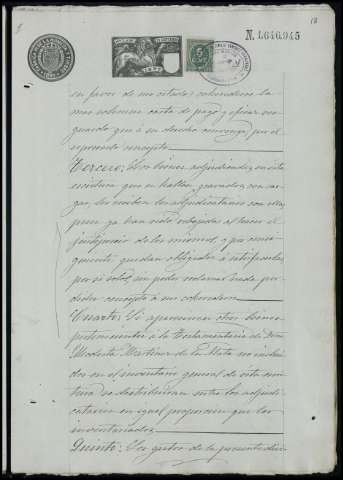 18
N. 4.646.945
5
en favor de mis citados coherederos la
mas solemne carta de pago y eficaz res-
guardo que á su derecho convenga, por el
expresado concepto.
Tercero: Los bienes adjudicados en esta
escritura que se hallan gravados con car-
gas, los reciben los adjudicatarios con ellas,
pues ya han sido rebajadas al hacer el
justiprecio de los mismos, y por consi-
guiente quedan obligados á satisfacerlas
por si solos, sin poder reclamar nada por
dicho concepto á sus coherederos.
Cuarto: Si aparecieren otros bienes
pertenecientes á la Testamentaria de Don
Modesto Martinez de la Mata no inclui-
dos en el inventario general de esta escri-
tura se distribuirán entre los adjudi-
catarios en igual proporcion que los
inventariados.
Quinto: Los gastos de la presente